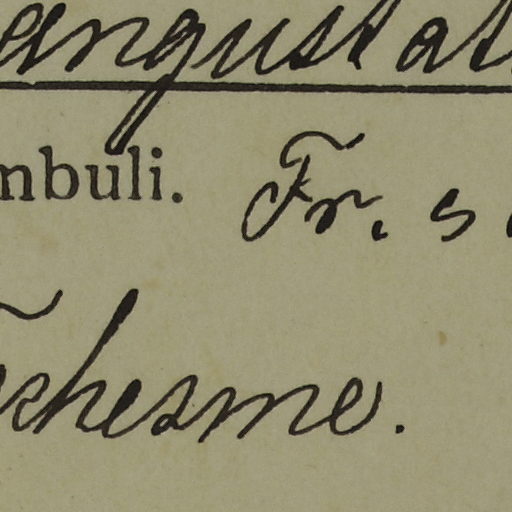 angustat
mbuli. Fr. s
Tchesme.